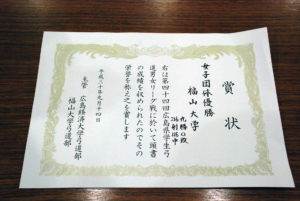 賞状
女子団体優勝
福山大学
九勝〇敗
右は第四十四回広島県学生弓
道男女リーグ戦に於いて頭書
の成績を収められたのでその
栄誉を称え之を賞します
平成二十年九月十四日
主管 広島経済大学弓道部
福山大学弓道部